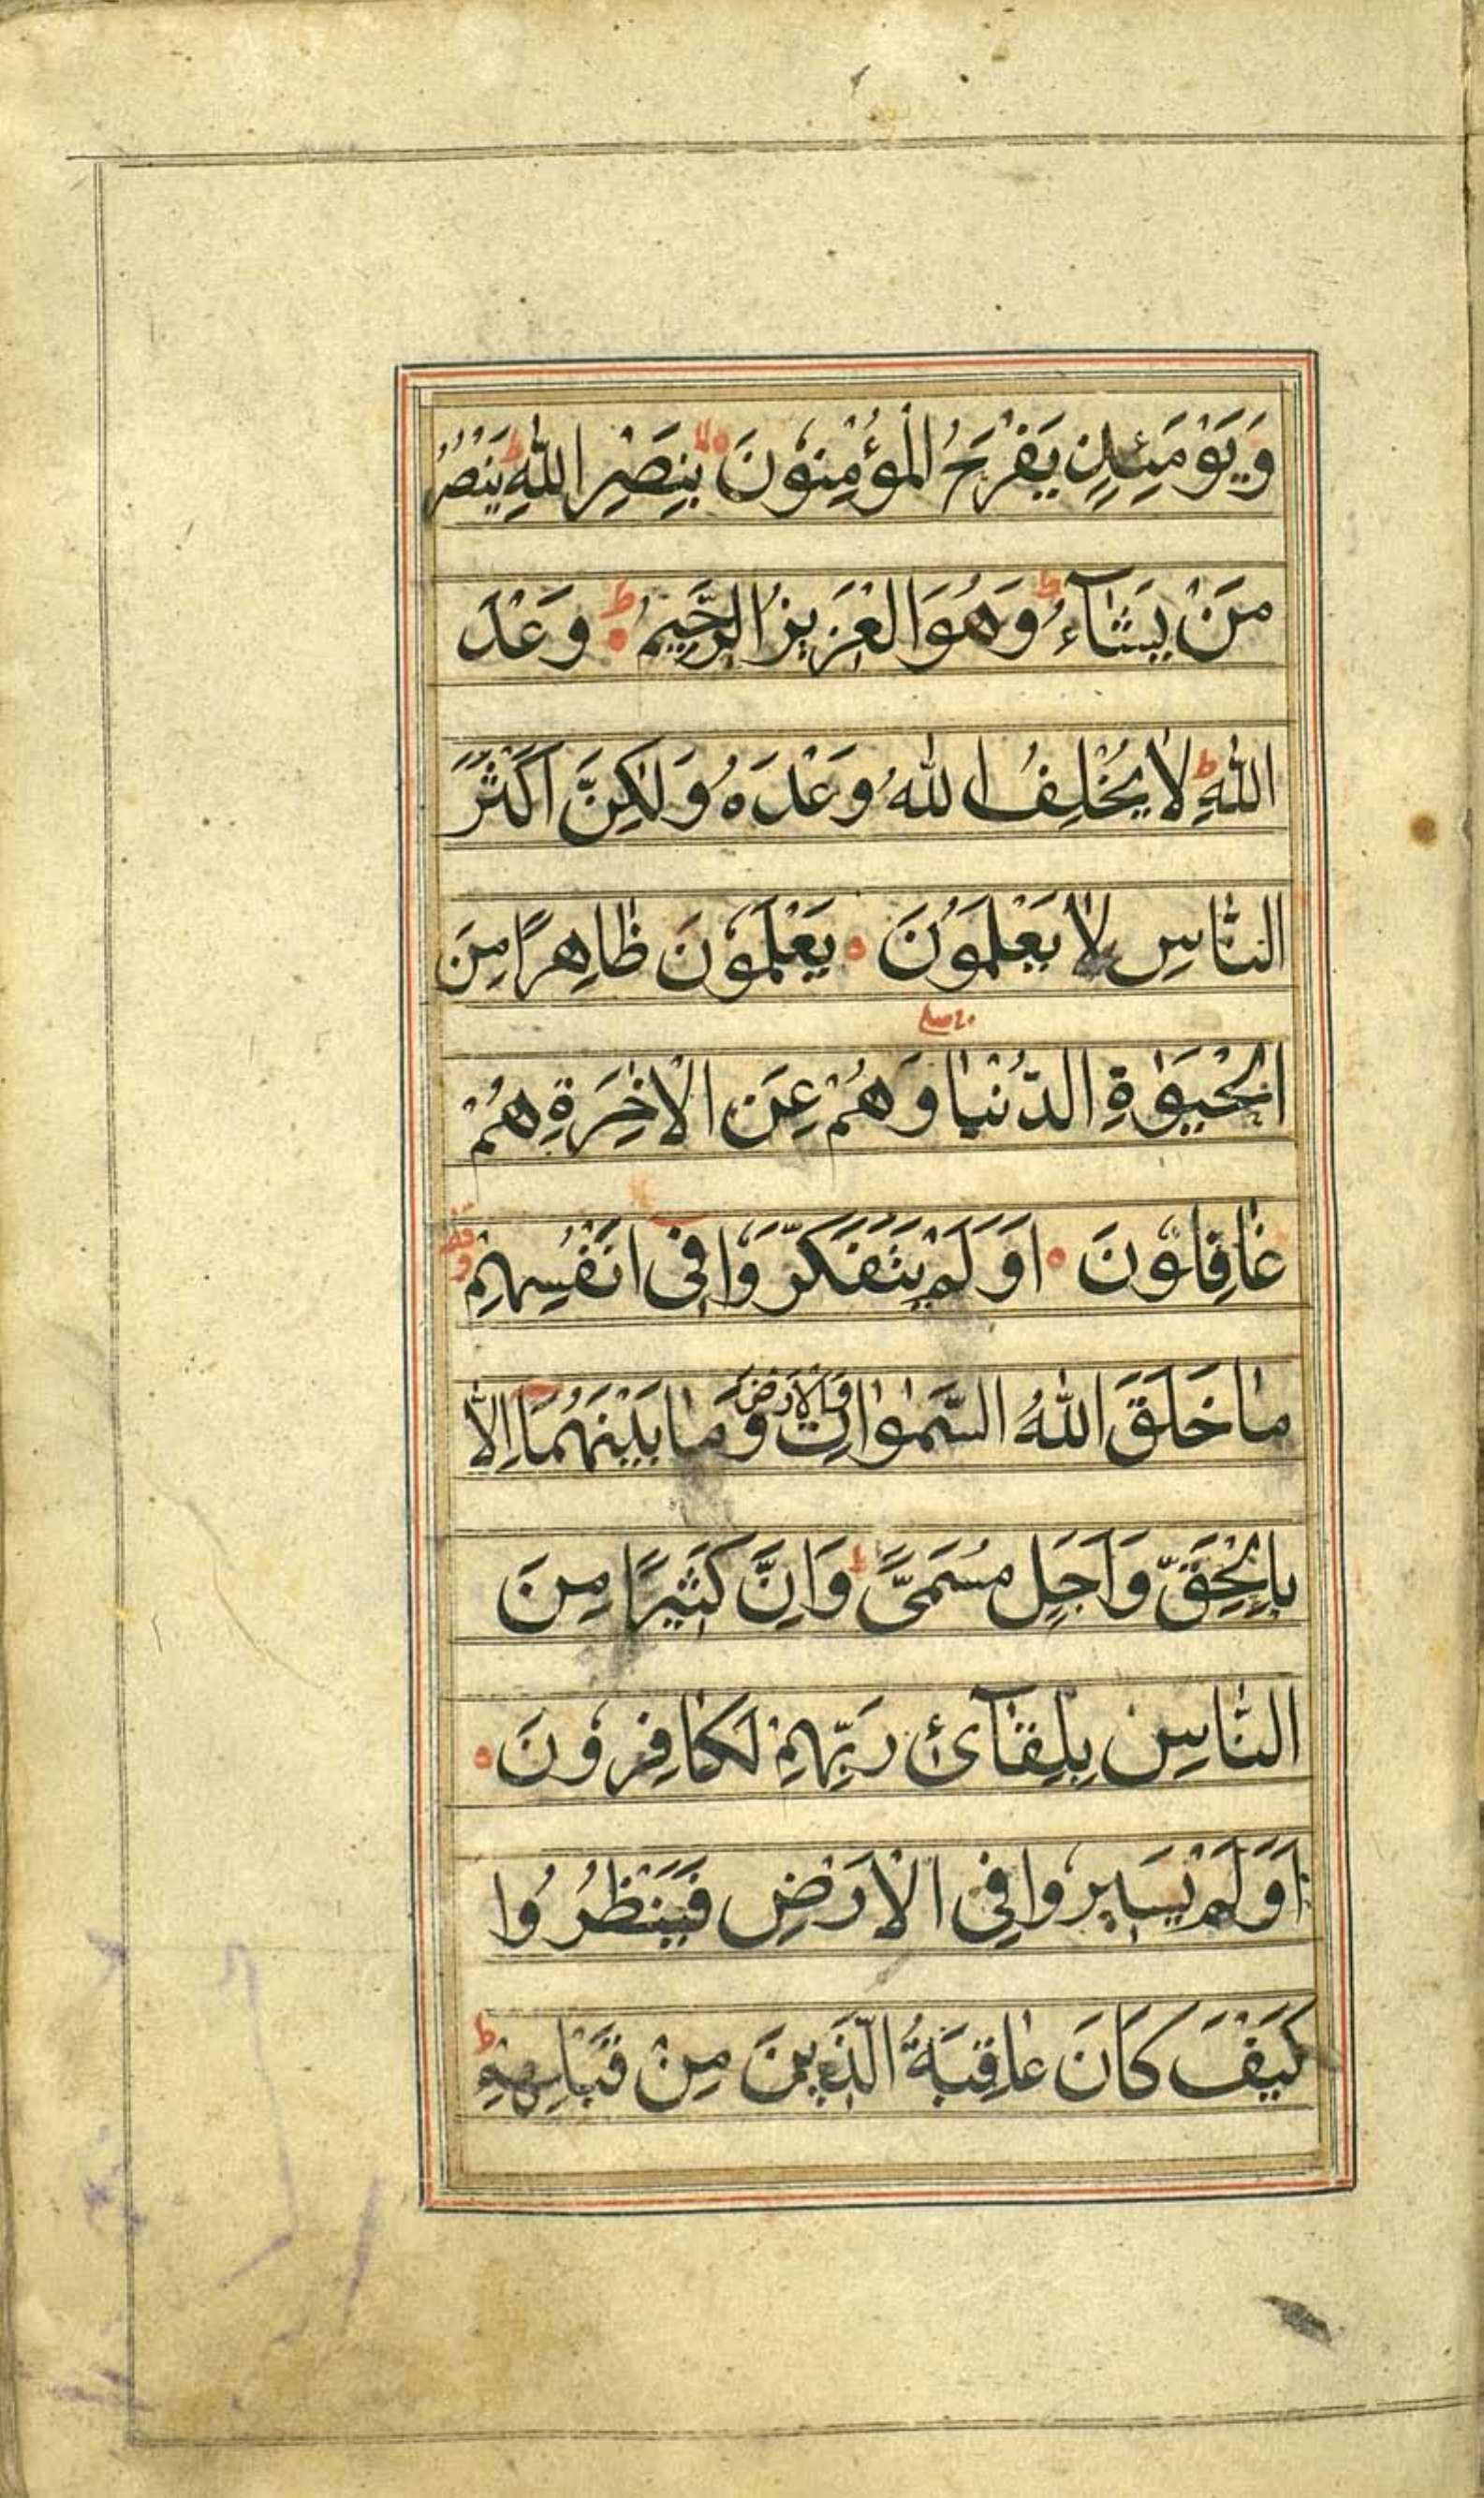 وَيَوْمَئِذٍ يَفْرَحُ الْمُؤْمِنُونَ لا بِنَصْرِ اللّٰهِ ط يَنْصُرُ
مَنْ يَشَآءُ ط وَهُوَ الْعَزِيزُ الرَّحِيمُ ط وَعْدَ
اللّٰهِ ط لَا يُخْلِفُ اللّٰهُ وَعْدَهُ وَلٰكِنَّ اَكْثَرَ
النَّاسِ لَا يَعْلَمُونَ يَعْلَمُونَ ظَاهِرًا مِنَ
الْحَيٰوةِ الدُّنْيَا وَهُمْ عَنِ الْاٰخِرَةِ هُمْ
غَافِلُونَ اَوَلَمْ يَتَفَكَّرُوا فِى اَنْفُسِهِمْ
مَا خَلَقَ اللّٰهُ السَّمٰوَاتِ وَالْاَرْضَ وَمَا بَيْنَهُمَا اِلَّا
بِالْحَقِّ وَاَجَلٍ مُسَمًّى ط وَاِنَّ كَثِيرًا مِنَ
النَّاسِ بِلِقَآئِ رَبِّهِمْ لَكَافِرُونَ
اَوَلَمْ يَسِيرُوا فِى الْاَرْضِ فَيَنْظُرُوا
كَيْفَ كَانَ عَاقِبَةُ الَّذِينَ مِنْ قَبْلِهِمْ ط